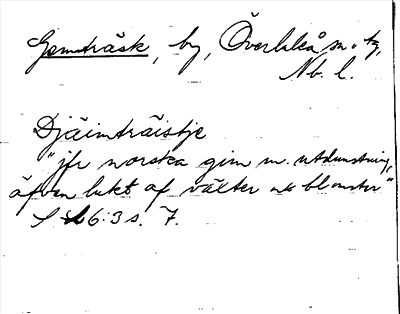 Gemträsk, by, Överluleå sn. o. tg,
Nb. l.
Djäimträistje
"jfr norska gim m. utdunstning,
äfven lukt af växter o. blomster"
S 6:3 s. 7.